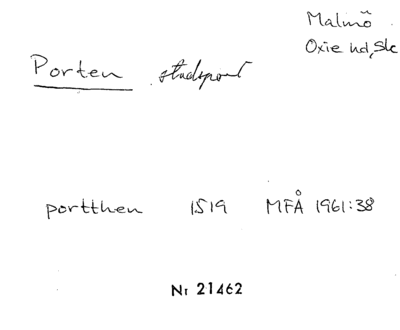 Malmö
Oxie hd, Sk
Porten stadsport
portthen 1519 MFÅ 1961:38
Nr 21462